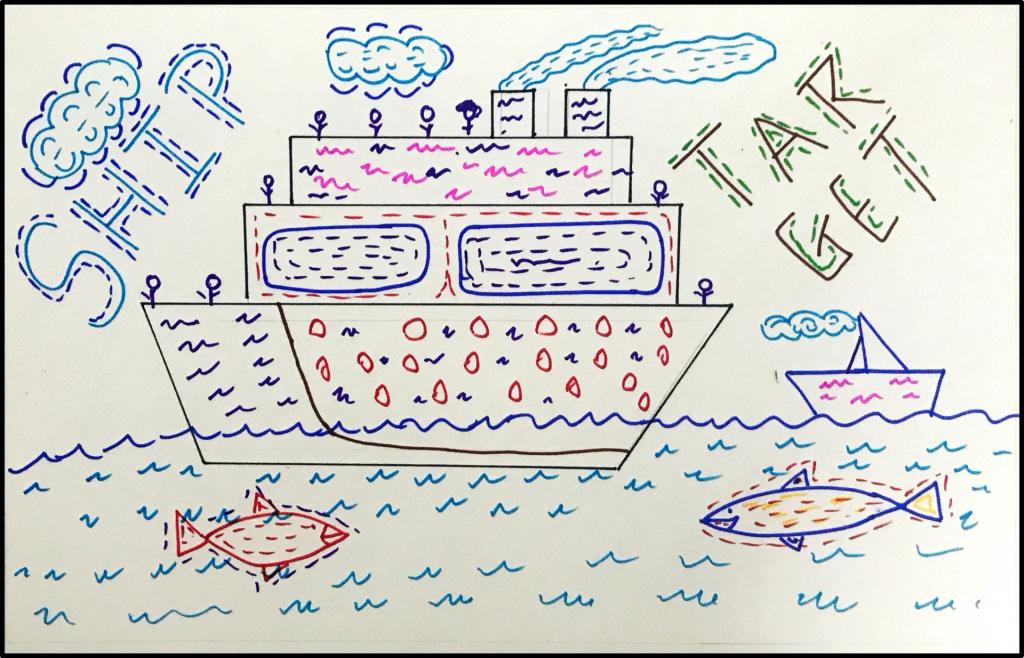 SHIP
TAR
GET